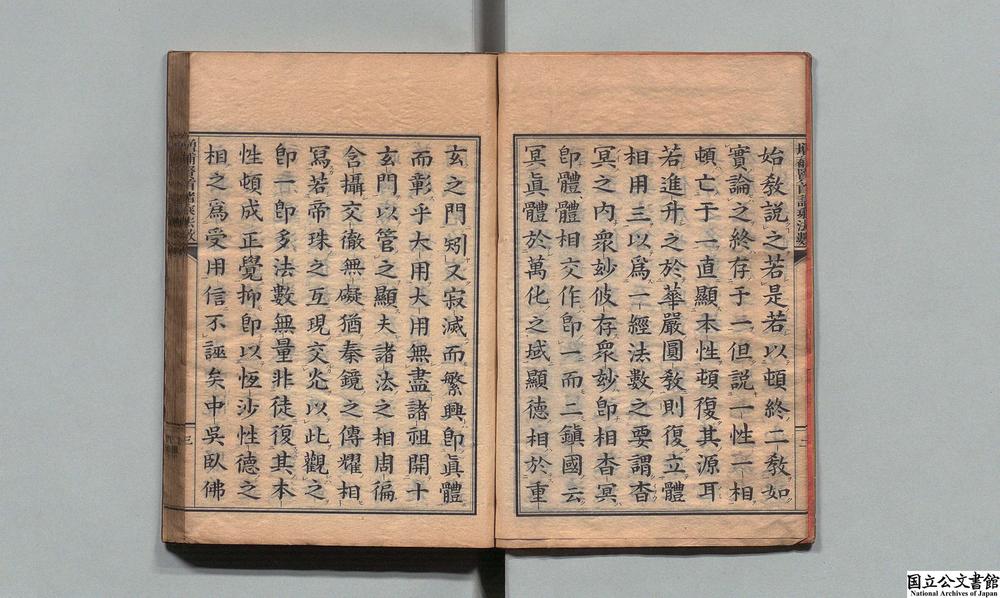 始敎說之若是若以頓終二敎如
實論之終存于一但説一性一相
頓亡于一直顯本性頓復其源耳
若進升之於華嚴圓敎則復立體
相用三以爲一經法數之要謂杳
冥之内衆玅攸存衆玅即相杳冥
即體體相交作即一而二鎮國云
冥眞體於萬化之域顯德相於重
玄之門矧又寂滅而繁興即眞體
而彰乎大用大用無盡諸祖開十
玄門以管之顯夫諸法之相周徧
含攝交徹無礙猶秦鏡之傳耀相
冩若帝珠之互現交光以此觀之
即一即多法數無量非徒復其本
性頓成正覺抑即以恆沙性德之
相之爲受用信不誣矣中吳臥佛
国立公文書館
National Archives of Japan